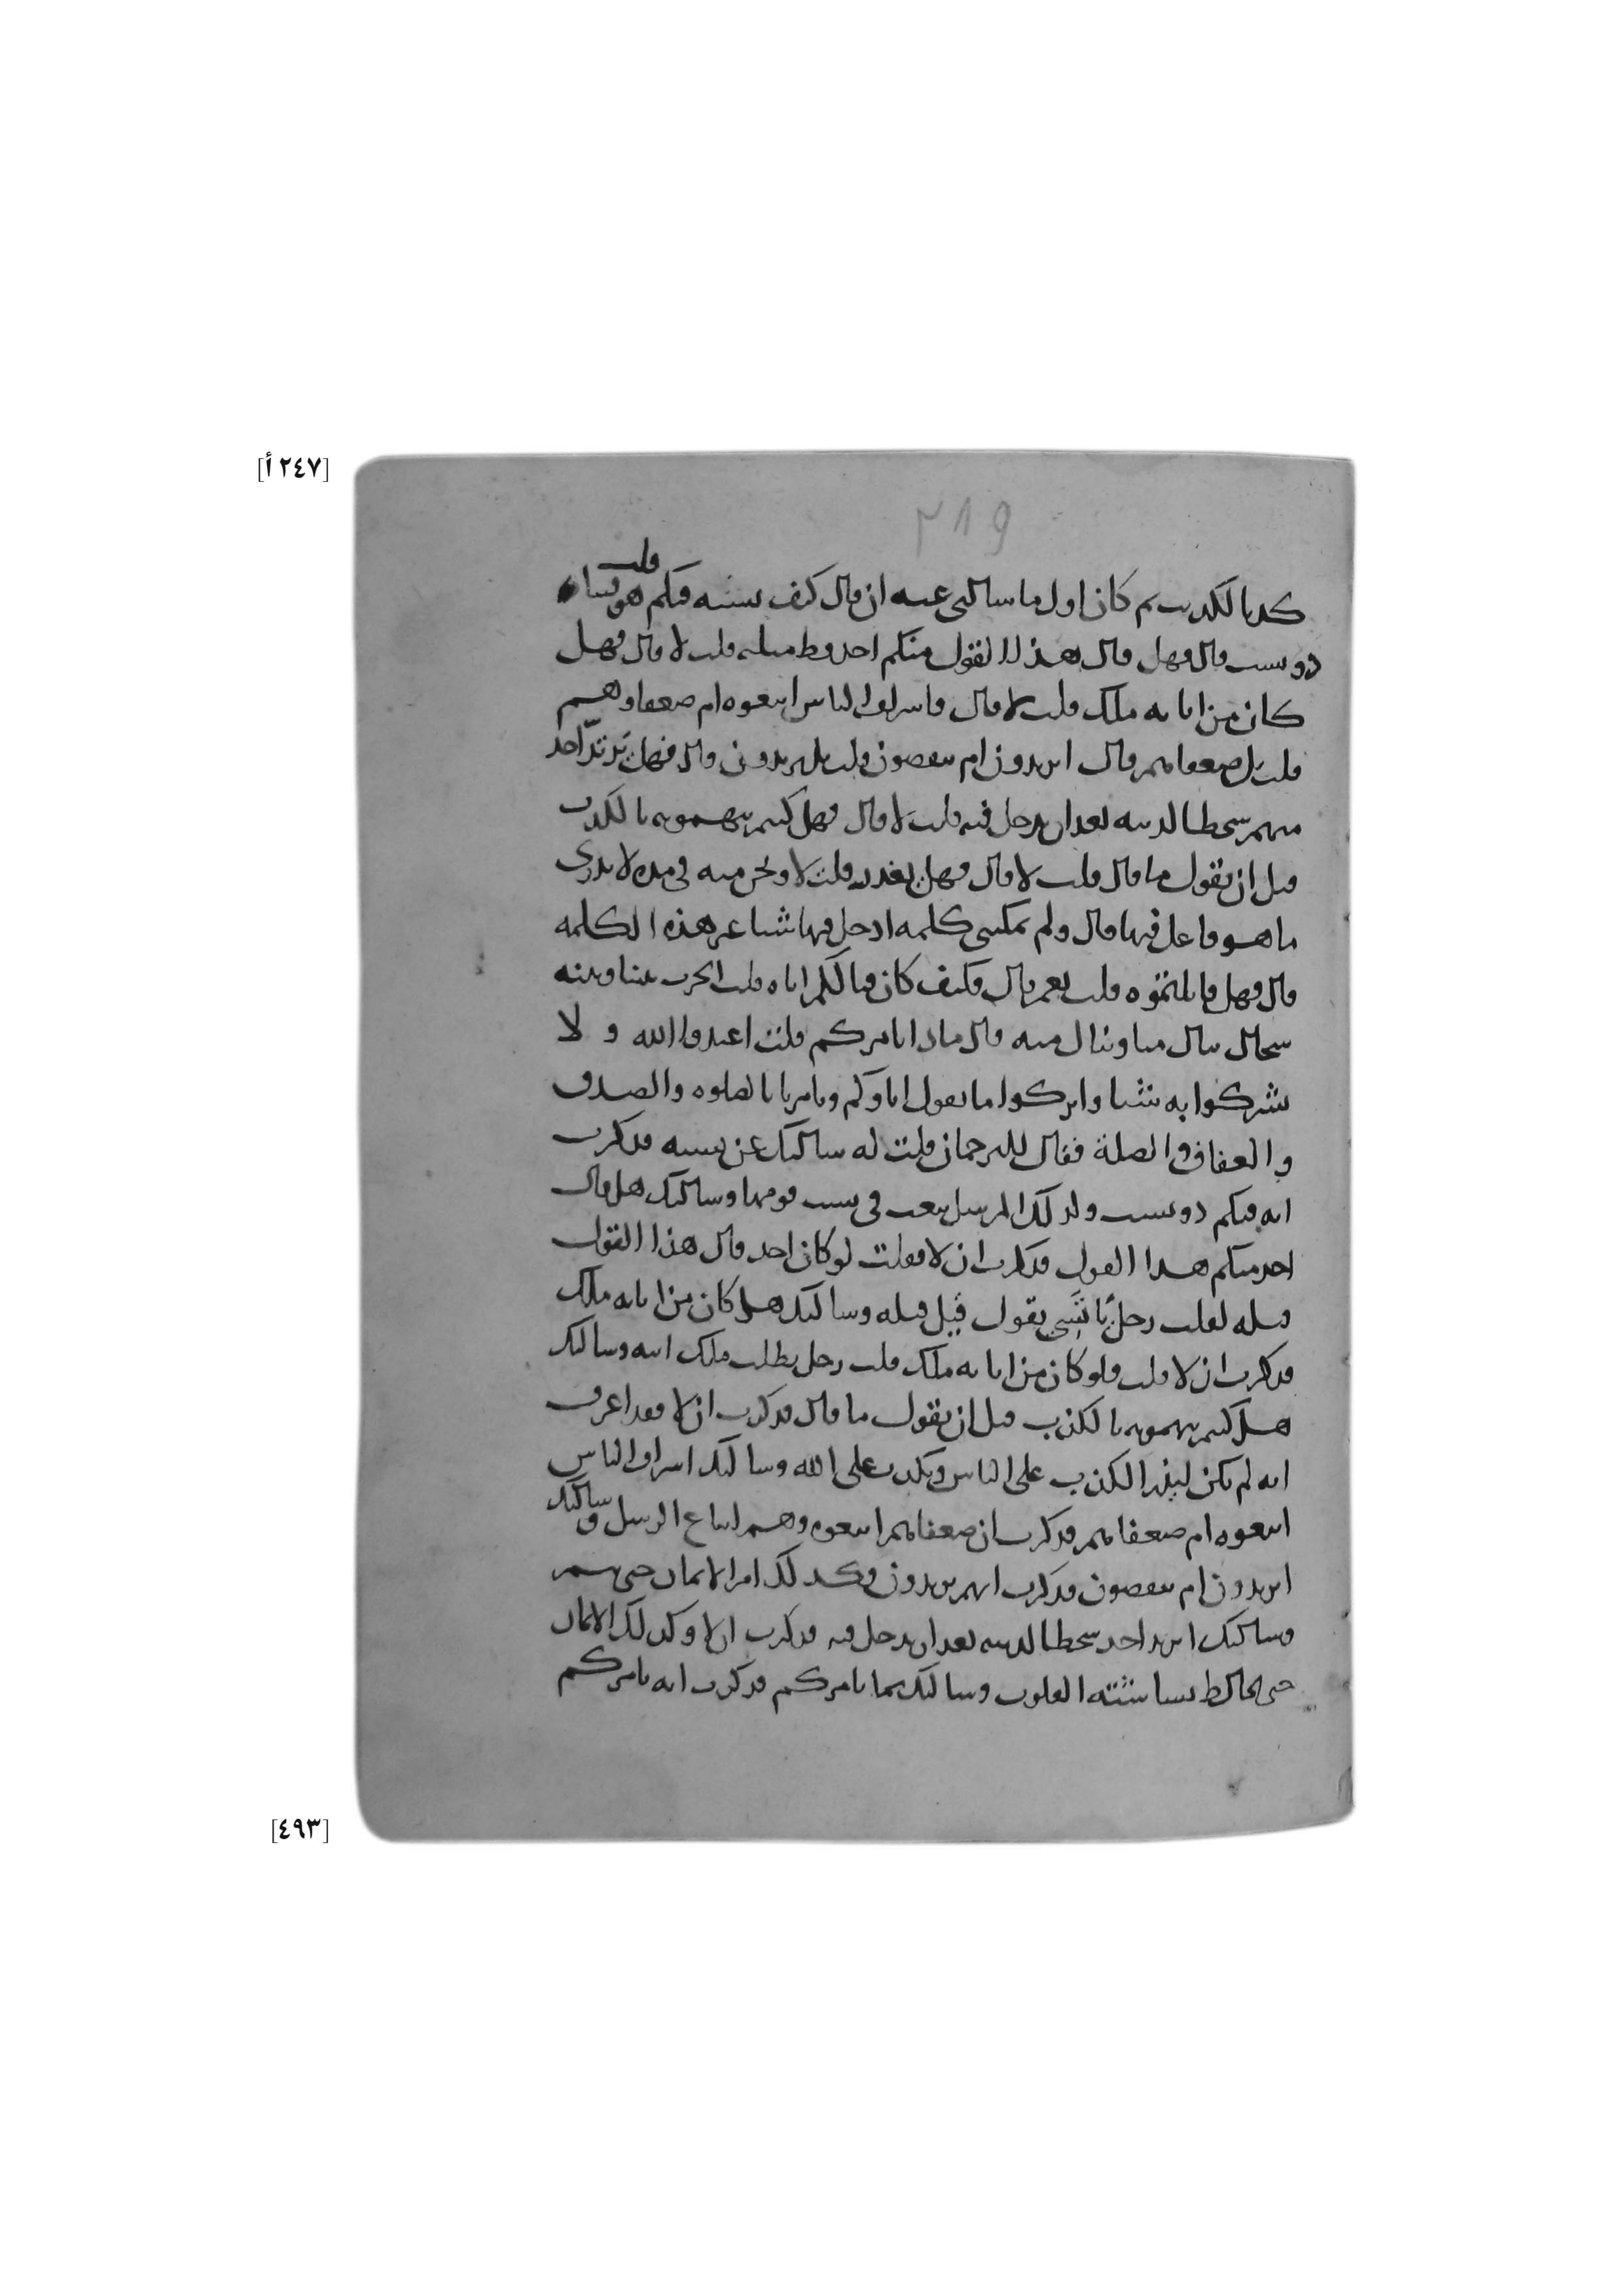 [٢٤٧ أ]
٢١٩
كذبا لكذبت ثم كان اول ما سالني عنه ان قال كيف نسبه فيكم قلت هو فينا
ذو نسب قال وهل قال هذا القول منكم احد قط قبله قلت لا قال فهل
كان من ابايه ملك قلت لا قال فاشراف الناس اتبعوه ام ضعفاوهم
قلت بل ضعفاهم قال ايزيدون ام ينقصون قلت بل يزيدون قال فهل يرتدّ احد
منهم سخطا لدينه بعد ان يدخل فيه قلت لا قال فهل كنتم تتهمونه بالكذب
قبل ان يقول ما قال قلت لا قال فهل يغدر قلت لا ونحن منه في مدة لا ندري
ما هو فاعل فيها قال ولم تمكني كلمة ادخل فيها شيا غير هذه الكلمة
قال وهل قاتلتموه قلت نعم قال فكيف كان قتالكم اياه قلت الحرب بيننا وبينه
سجال ينال منا وننال منه قال ماذا يامركم قلت اعبدوا الله ولا
تشركوا به شيا واتركوا ما يقول اباوكم ويامرنا بالصلوه والصدق
والعفاف والصلة فقال للترجمان قلت له سالتك عن نسبه فذكرت
انه فيكم ذو نسب وكذلك الرسل تبعث في نسب قومها وسالتك هل قال
احد منكم هذا القول فذكرت ان لا فقلت لو كان احد قال هذا القول
قبله لقلت رجل ياتسي يقول قيل قبله وسالتك هل كان من ابايه ملك
فذكرت ان لا قلت ولو كان من ابايه ملك قلت رجل يطلب ملك ابيه وسالتك
هل كنتم تتهمونه بالكذب قبل ان يقول ما قال فذكرت ان لا فقد اعرف
انه لم يكن ليذر الكذب على الناس ويكذب على الله وسالتك اشراف الناس
اتبعوه ام ضعفاهم فذكرت ان ضعفاهم اتبعوه وهم اتباع الرسل وسالتك
ايزيدون ام ينقصون فذكرت انهم يزيدون وكذلك امر الايمان حتى يتم
وسالتك ايرتد احد سخطا لدينه بعد ان يدخل فيه فذكرت ان لا وكذلك الايمان
حين تخالط بشاشته القلوب وسالتك بما يامركم فذكرت انه يامركم
[٤٩٣]